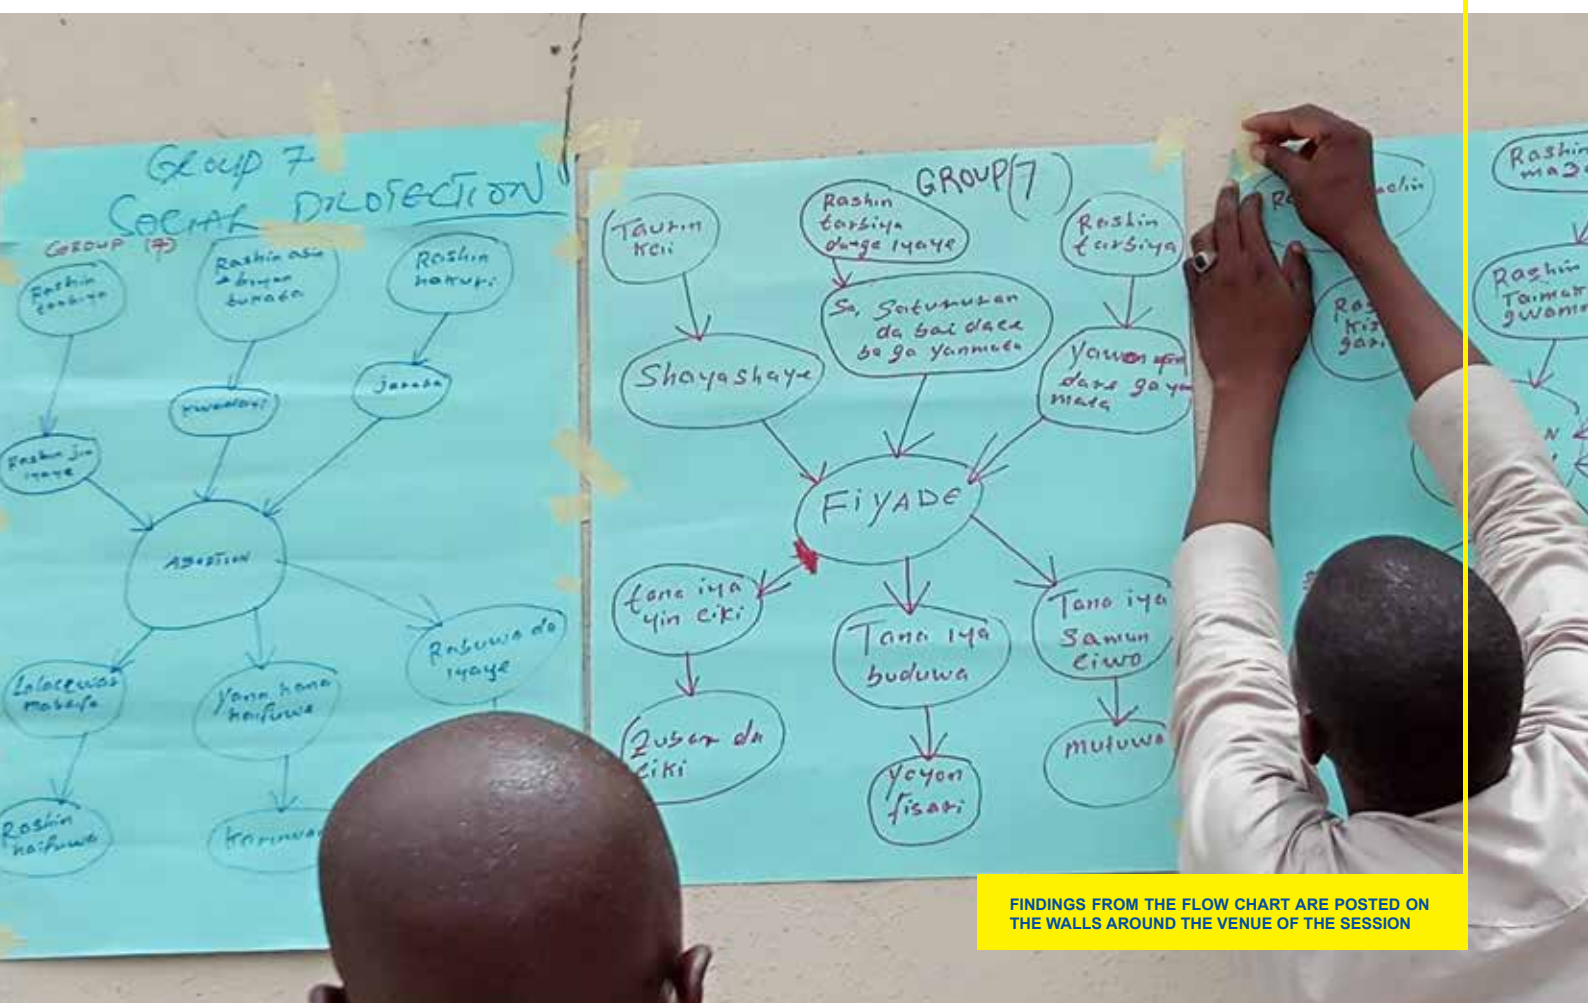 GROUP 7
SOCIAL
GROUP (7)
Rashin
tarbiya
Rashin
bukata
Rashin
hakuri
kwadayi
jaraba
Rashin jin
iyaye
ABORTION
Rabuwa da
iyaye
mahaifa
Yana hana
haifuwa
Rashin
haifuwa
GROUP (7)
Taurin
Kai
Rashin
tarbiya
daga iyaye
Rashin
tarbiya
Shayashaye
Sa, Satururan
da bai dace
ba ga yanmata
Yawon
dare ga yan
mata
FiYADE
tana iya
yin ciki
Tana iya
buduwa
Tana iya
Samun
ciwo
Zubar da
ciki
Yoyon
fisari
mutuwa
Rashin
Rashin
Taimak
gwamn
FINDINGS FROM THE FLOW CHART ARE POSTED ON
THE WALLS AROUND THE VENUE OF THE SESSION